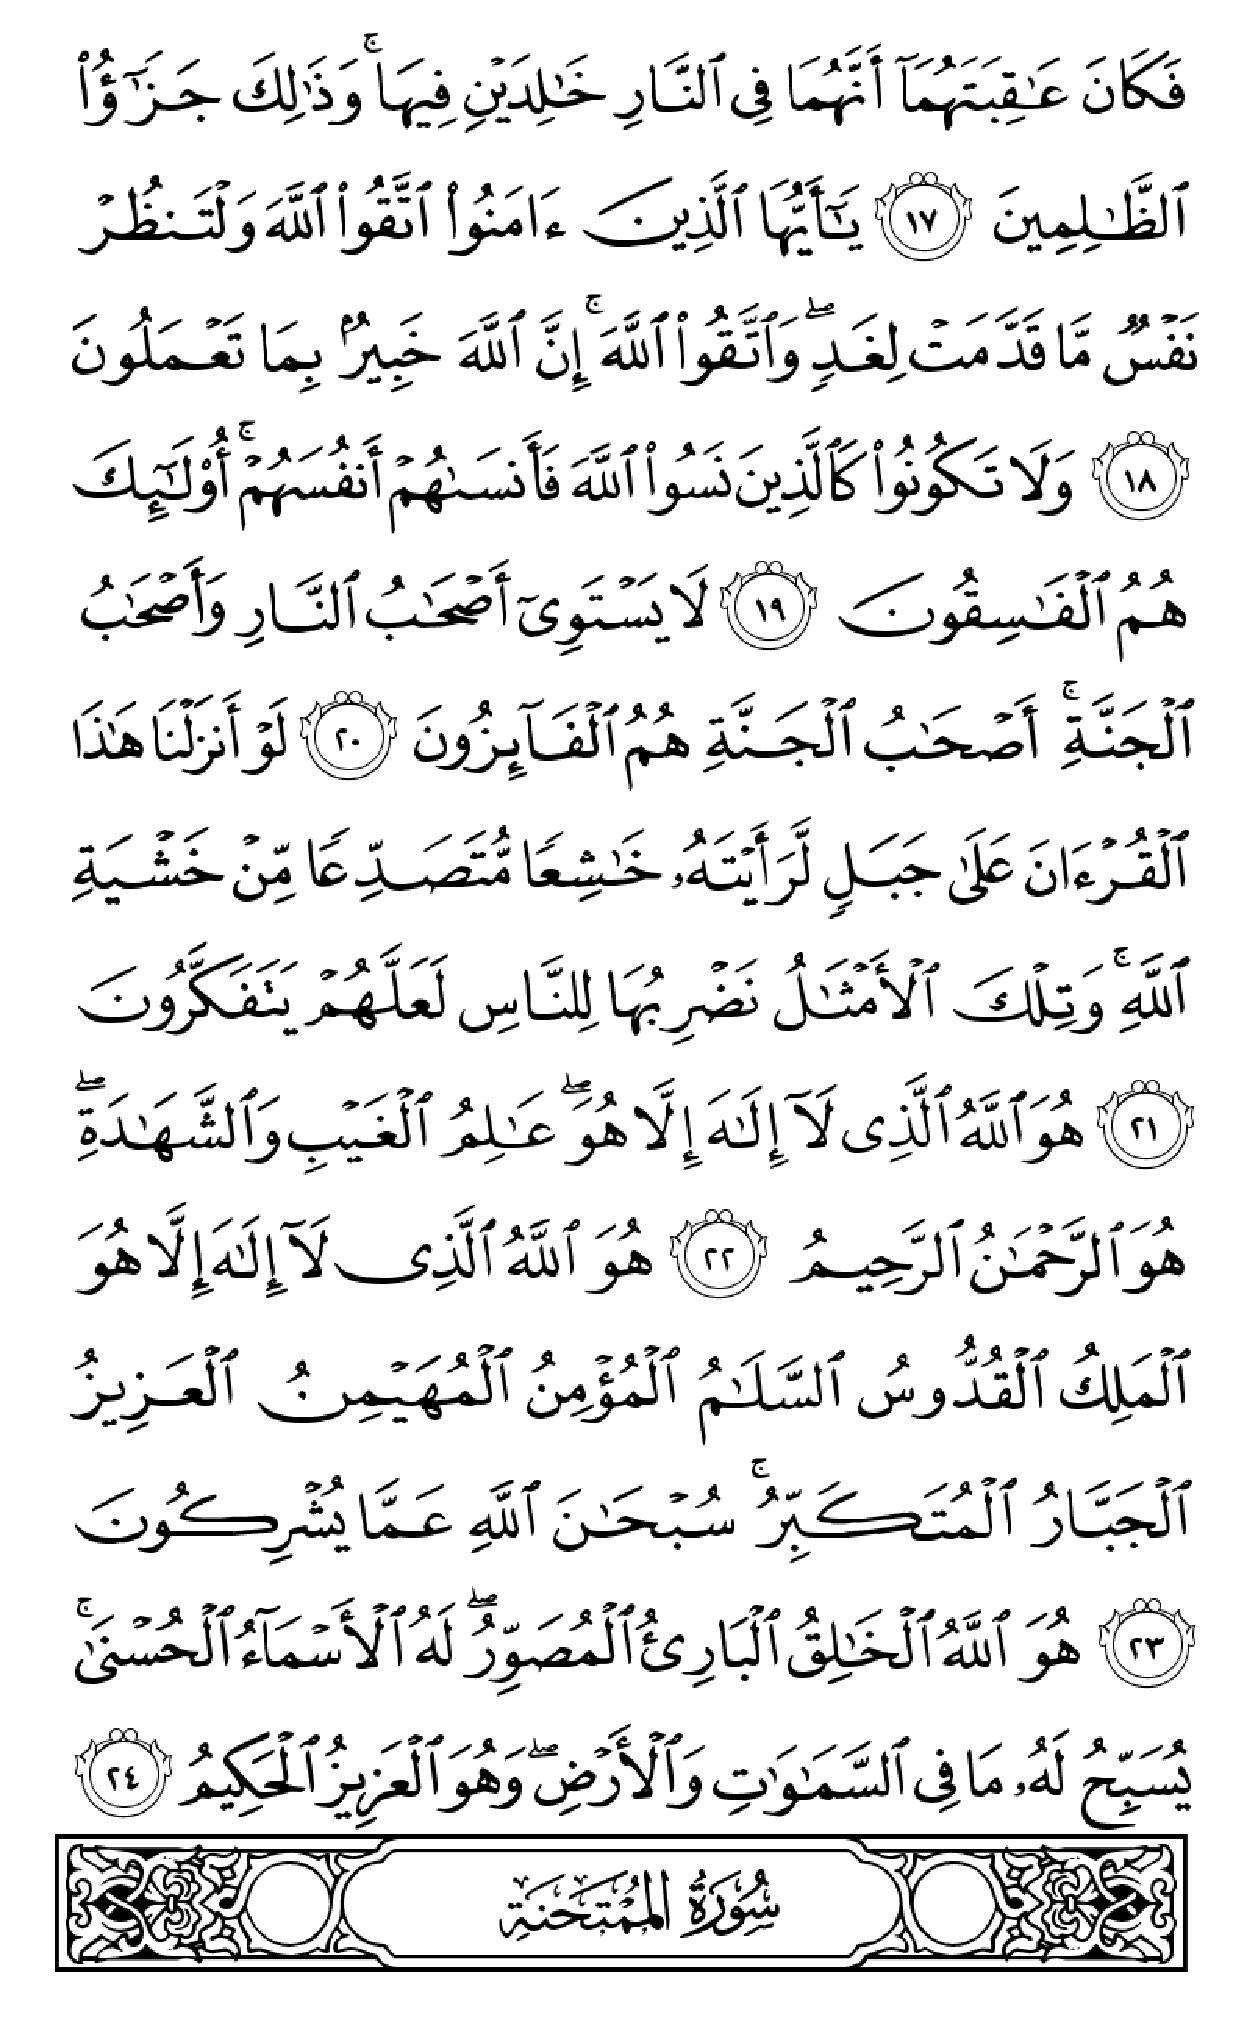 فَكَانَ عَـٰقِبَتَهُمَآ أَنَّهُمَا فِى ٱلنَّارِ خَـٰلِدَيْنِ فِيهَا ۚ وَذَٰلِكَ جَزَٰٓؤُا۟
ٱلظَّـٰلِمِينَ ١٧ يَـٰٓأَيُّهَا ٱلَّذِينَ ءَامَنُوا۟ ٱتَّقُوا۟ ٱللَّهَ وَلْتَنظُرْ
نَفْسٌ مَّا قَدَّمَتْ لِغَدٍ ۖ وَٱتَّقُوا۟ ٱللَّهَ ۚ إِنَّ ٱللَّهَ خَبِيرٌۢ بِمَا تَعْمَلُونَ
١٨ وَلَا تَكُونُوا۟ كَٱلَّذِينَ نَسُوا۟ ٱللَّهَ فَأَنسَىٰهُمْ أَنفُسَهُمْ ۚ أُو۟لَـٰٓئِكَ
هُمُ ٱلْفَـٰسِقُونَ ١٩ لَا يَسْتَوِىٓ أَصْحَـٰبُ ٱلنَّارِ وَأَصْحَـٰبُ
ٱلْجَنَّةِ ۚ أَصْحَـٰبُ ٱلْجَنَّةِ هُمُ ٱلْفَآئِزُونَ ٢٠ لَوْ أَنزَلْنَا هَـٰذَا
ٱلْقُرْءَانَ عَلَىٰ جَبَلٍ لَّرَأَيْتَهُۥ خَـٰشِعًا مُّتَصَدِّعًا مِّنْ خَشْيَةِ
ٱللَّهِ ۚ وَتِلْكَ ٱلْأَمْثَـٰلُ نَضْرِبُهَا لِلنَّاسِ لَعَلَّهُمْ يَتَفَكَّرُونَ
٢١ هُوَ ٱللَّهُ ٱلَّذِى لَآ إِلَـٰهَ إِلَّا هُوَ ۖ عَـٰلِمُ ٱلْغَيْبِ وَٱلشَّهَـٰدَةِ ۖ
هُوَ ٱلرَّحْمَـٰنُ ٱلرَّحِيمُ ٢٢ هُوَ ٱللَّهُ ٱلَّذِى لَآ إِلَـٰهَ إِلَّا هُوَ
ٱلْمَلِكُ ٱلْقُدُّوسُ ٱلسَّلَـٰمُ ٱلْمُؤْمِنُ ٱلْمُهَيْمِنُ ٱلْعَزِيزُ
ٱلْجَبَّارُ ٱلْمُتَكَبِّرُ ۚ سُبْحَـٰنَ ٱللَّهِ عَمَّا يُشْرِكُونَ
٢٣ هُوَ ٱللَّهُ ٱلْخَـٰلِقُ ٱلْبَارِئُ ٱلْمُصَوِّرُ ۖ لَهُ ٱلْأَسْمَآءُ ٱلْحُسْنَىٰ ۚ
يُسَبِّحُ لَهُۥ مَا فِى ٱلسَّمَـٰوَٰتِ وَٱلْأَرْضِ ۖ وَهُوَ ٱلْعَزِيزُ ٱلْحَكِيمُ ٢٤
سُورَةُ المُمْتَحَنَةِ